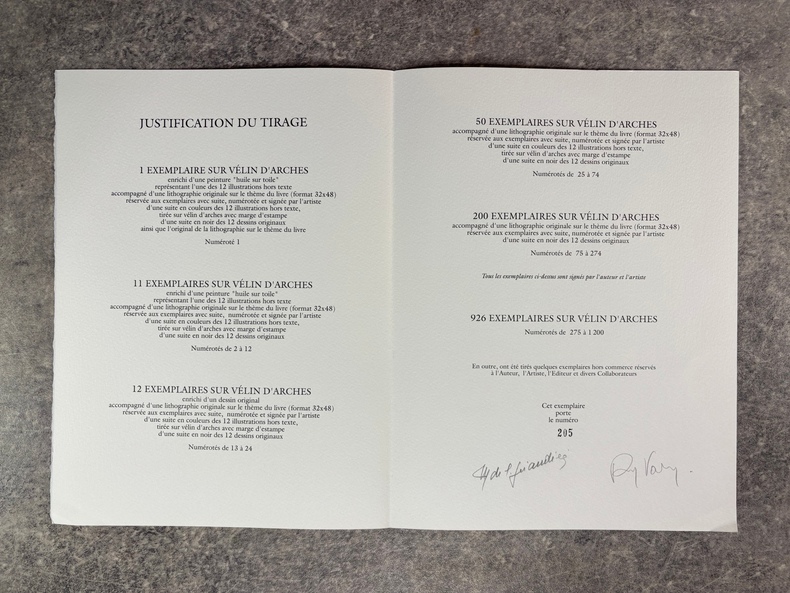 JUSTIFICATION DU TIRAGE
1 EXEMPLAIRE SUR VÉLIN D'ARCHES
enrichi d'une peinture "huile sur toile"
représentant l'une des 12 illustrations hors texte
accompagné d'une lithographie originale sur le thème du livre (format 32x48)
réservée aux exemplaires avec suite, numérotée et signée par l'artiste
d'une suite en couleurs des 12 illustrations hors texte,
tirée sur vélin d'arches avec marge d'estampe
d'une suite en noir des 12 dessins originaux
ainsi que l'original de la lithographie sur le thème du livre
Numéroté 1
11 EXEMPLAIRES SUR VÉLIN D'ARCHES
enrichi d'une peinture "huile sur toile"
représentant l'une des 12 illustrations hors texte
accompagné d'une lithographie originale sur le thème du livre (format 32x48)
réservée aux exemplaires avec suite, numérotée et signée par l'artiste
d'une suite en couleurs des 12 illustrations hors texte,
tirée sur vélin d'arches avec marge d'estampe
d'une suite en noir des 12 dessins originaux
Numérotés de 2 à 12
12 EXEMPLAIRES SUR VÉLIN D'ARCHES
enrichi d'un dessin original
accompagné d'une lithographie originale sur le thème du livre (format 32x48)
réservée aux exemplaires avec suite, numérotée et signée par l'artiste
d'une suite en couleurs des 12 illustrations hors texte,
tirée sur vélin d'arches avec marge d'estampe
d'une suite en noir des 12 dessins originaux
Numérotés de 13 à 24
50 EXEMPLAIRES SUR VÉLIN D'ARCHES
accompagné d'une lithographie originale sur le thème du livre (format 32x48)
réservée aux exemplaires avec suite, numérotée et signée par l'artiste
d'une suite en couleurs des 12 illustrations hors texte,
tirée sur vélin d'arches avec marge d'estampe
d'une suite en noir des 12 dessins originaux
Numérotés de 25 à 74
200 EXEMPLAIRES SUR VÉLIN D'ARCHES
accompagné d'une lithographie originale sur le thème du livre (format 32x48)
réservée aux exemplaires avec suite, numérotée et signée par l'artiste
d'une suite en noir des 12 dessins originaux
Numérotés de 75 à 274
Tous les exemplaires ci-dessus sont signés par l'auteur et l'artiste
926 EXEMPLAIRES SUR VÉLIN D'ARCHES
Numérotés de 275 à 1 200
En outre, ont été tirés quelques exemplaires hors commerce réservés
à l'Auteur, l'Artiste, l'Editeur et divers Collaborateurs
Cet exemplaire
porte
le numéro
205